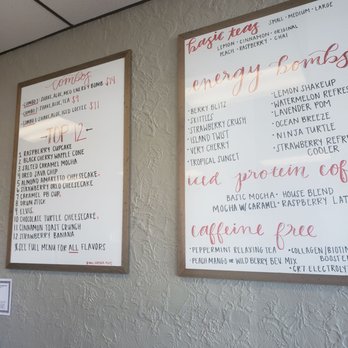 combos
COMBO 1 SHAKE, ALOE, MED ENERGY BOMB $14
COMBO 2 SHAKE, ALOE, TEA $9
COMBO 3 SHAKE, ALOE, ICED COFFEE $11
TOP 12
1 RASPBERRY CUPCAKE
2 BLACK CHERRY WAFFLE CONE
3 SALTED CARAMEL MOCHA
4 OREO JAVA CHIP
5 ALMOND AMARETTO CHEESECAKE
6 STRAWBERRY OREO CHEESECAKE
7 CARAMEL PB CUP
8 DRUM STICK
9 ELVIS
10 CHOCOLATE TURTLE CHEESECAKE
11 CINNAMON TOAST CRUNCH
12 STRAWBERRY BANANA
SEE FULL MENU FOR ALL FLAVORS
basic teas SMALL · MEDIUM · LARGE
LEMON · CINNAMON · ORIGINAL
PEACH · RASPBERRY · CHAI
energy bombs
· BERRY BLITZ
· SKITTLES
· STRAWBERRY CRUSH
· ISLAND TWIST
· VERY CHERRY
· TROPICAL SUNSET
· LEMON SHAKEUP
· WATERMELON REFRES
· LAVENDER POM
· OCEAN BREEZE
· NINJA TURTLE
· STRAWBERRY REFR
COOLER
iced protein cof
BASIC MOCHA · HOUSE BLEND
MOCHA W/CARAMEL · RASPBERRY LAT
caffeine free
· PEPPERMINT RELAXING TEA
· PEACH MANGO OR WILD BERRY BEV. MIX
· COLLAGEN/BIOTIN
BOOSTE
· CR7 ELECTROLY